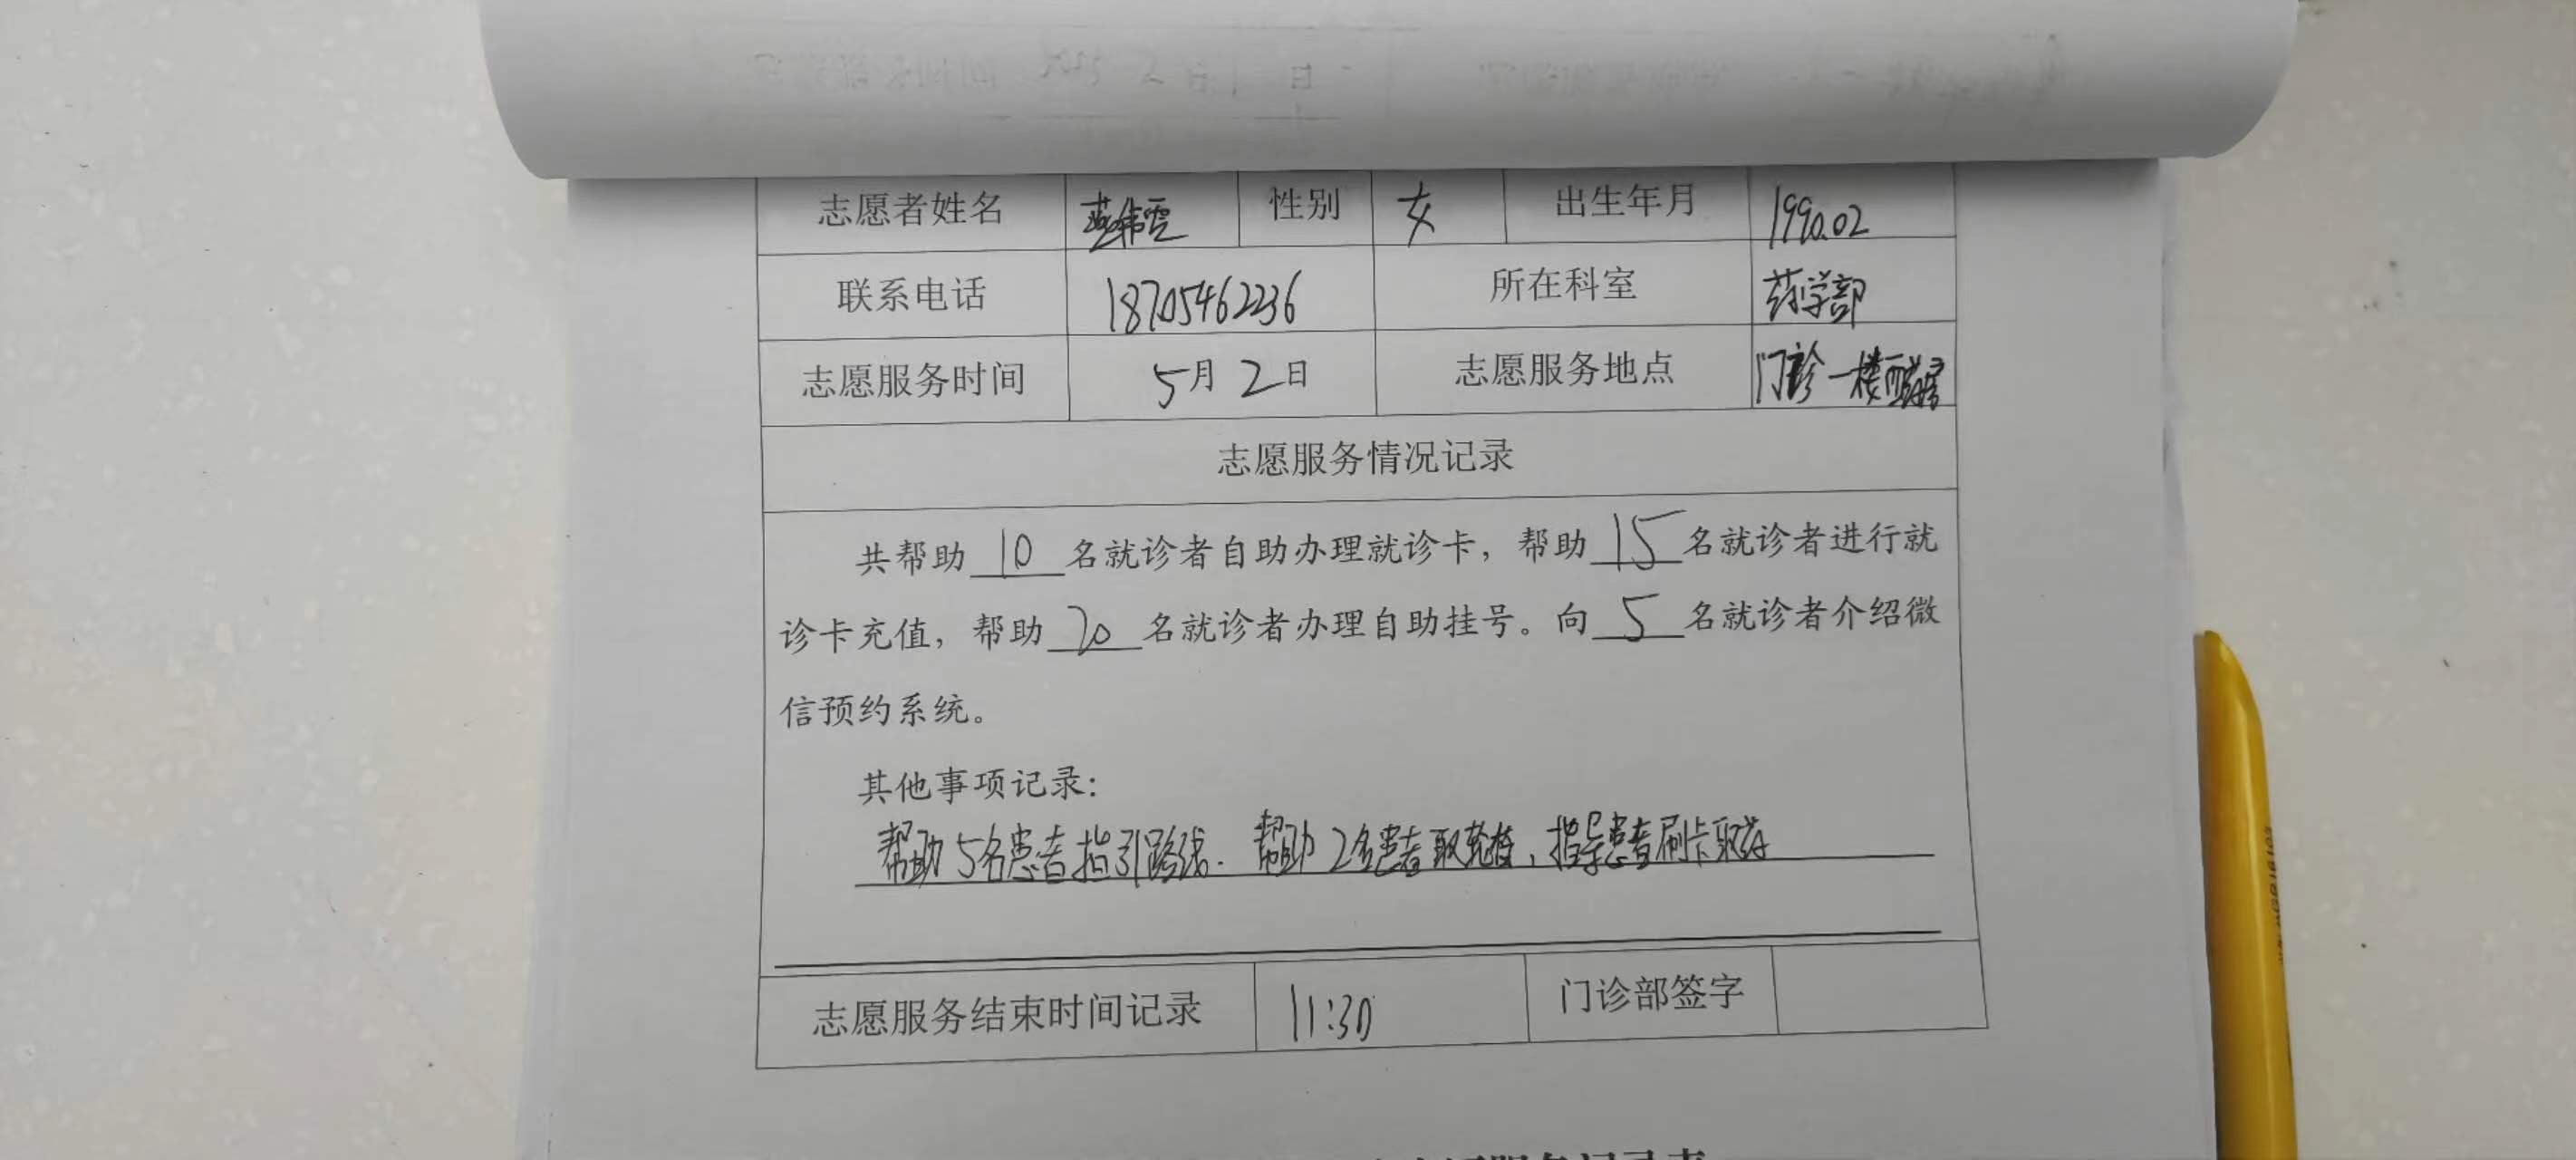 志愿者姓名 性别 女 出生年月 1990.02
联系电话 18705462236 所在科室 药学部
志愿服务时间 5月2日 志愿服务地点 门诊一楼
志愿服务情况记录
共帮助 10 名就诊者自助办理就诊卡，帮助 15 名就诊者进行就
诊卡充值，帮助 20 名就诊者办理自助挂号。向 5 名就诊者介绍微
信预约系统。
其他事项记录：
帮助5名患者指引路线. 帮助2名患者取轮椅，指导患者刷卡取药
志愿服务结束时间记录 11:30 门诊部签字